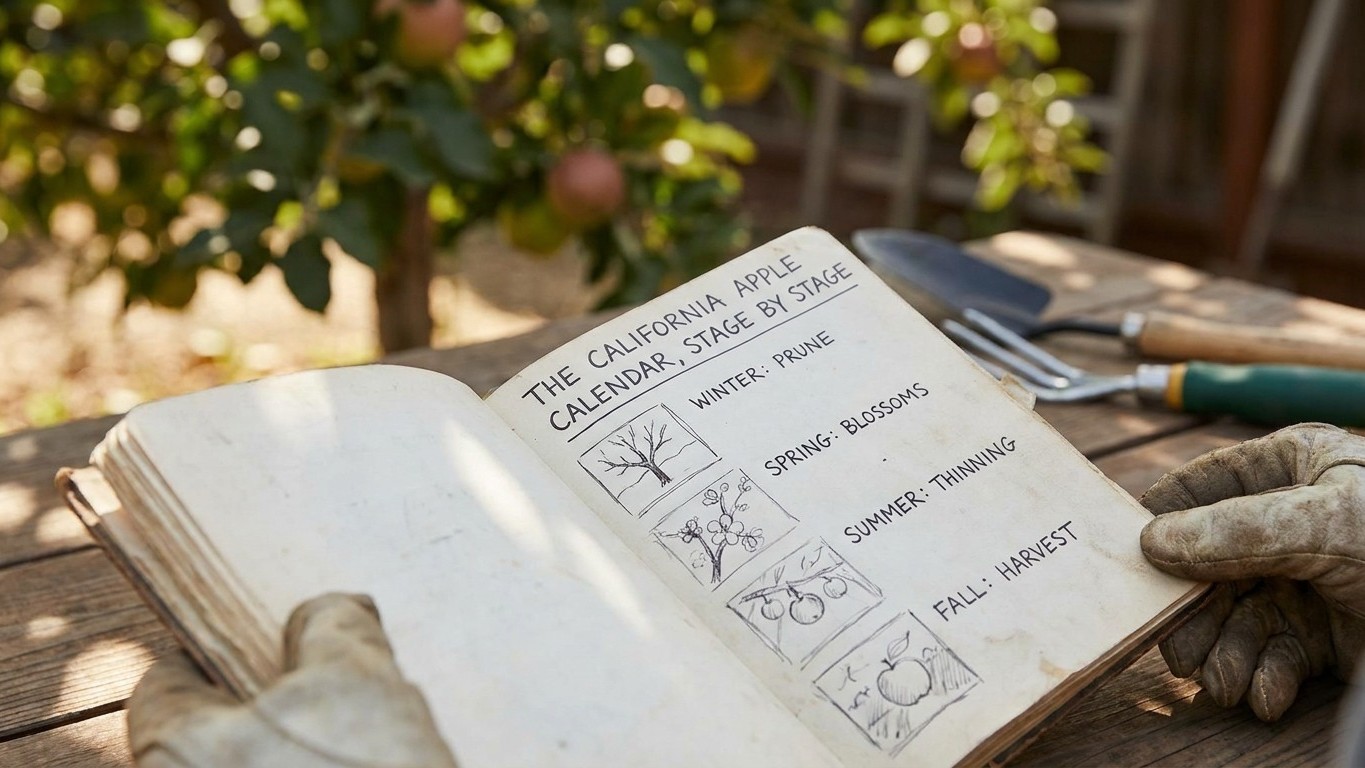 THE CALIFORNIA APPLE
CALENDAR, STAGE BY STAGE
WINTER: PRUNE
SPRING: BLOSSOMS
SUMMER: THINNING
FALL: HARVEST